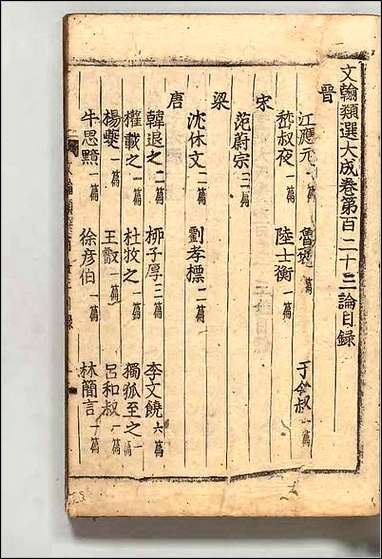 文翰類選大成卷第百二十三論目錄
晉
江應元一篇 魯褒一篇 于令叔一篇
嵇叔夜一篇 陸士衡一篇
宋
范蔚宗三篇
梁
沈休文二篇 劉孝標二篇
唐
韓退之二篇 柳子厚三篇 李文饒六篇
權載之一篇 杜牧之一篇 獨孤至之一篇
楊夔一篇 王叡一篇 呂和叔一篇
牛思黯一篇 徐彥伯一篇 林簡言一篇